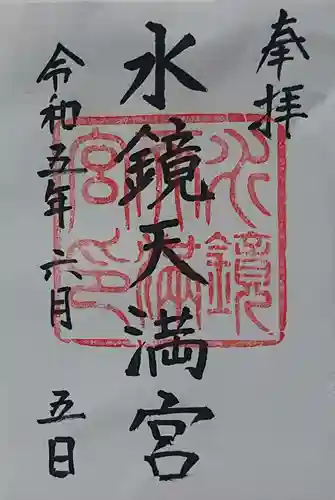 奉拝
水鏡天満宮
令和五年六月五日
水鏡天満宮印